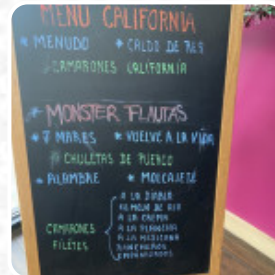 MENU CALIFORNIA
* MENUDO * CALDO DE RES
CAMARONES CALIFORNIA
* MONSTER FLAUTAS
* 7 MARES * VUELVE A LA VIDA
CHULETAS DE PUERCO
* ALAMBRE * MOLCAJETE
CAMARONES
FILETES
A LA DIABLA
AL MOJO DE AJO
A LA CREMA
A LA PLANCHA
A LA MEXICANA
RANCHEROS
EMPANIZADOS